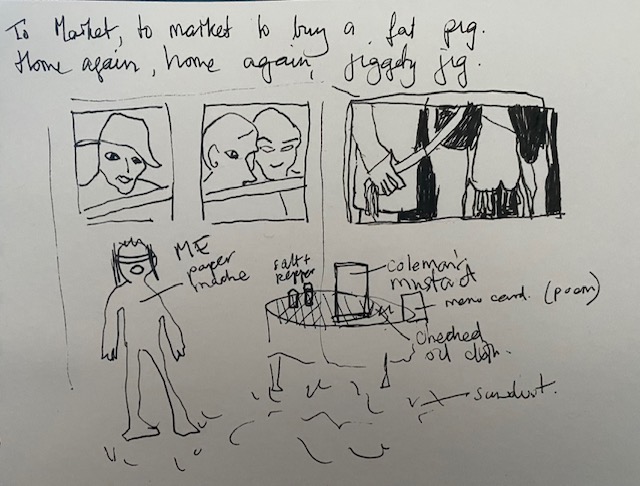 To Market, to market to buy a fat pig.
Home again, home again, jiggety jig.
ME
paper
mache
salt +
pepper
Coleman's
mustard
menu card. (poem)
Checked
oil cloth.
sawdust.